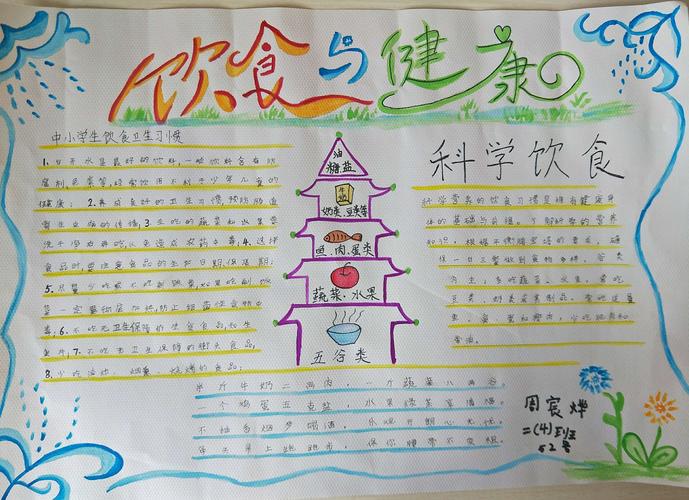 饮食与健康
中小学生饮食卫生习惯
1.白开水是最好的饮料,一些饮料含有防
腐剂,色素等,经常饮用不利于少年儿童的
健康。2.养成良好的卫生习惯,预防肠道
寄生虫病的传播;3.生吃的蔬菜和水果要
洗干净后再吃,以免造成农药中毒;4.选择
食品时,要注意食品的生产日期、保质期;
5.尽量少吃或不吃剩饭菜,如需吃剩饭
菜一定要彻底加热,防止细菌性食物中
毒;6.不吃无卫生保障的生食食品,如生
鱼片;7.不吃无卫生保障的街头食品;
8.少吃油炸、烟熏、烧烤的食品;
油
糖盐
牛奶
奶类、豆类等
鱼、肉、蛋类
蔬菜、水果
五谷类
科学饮食
科学营养的饮食习惯是拥有健康身
体的基础与前提。了解科学的营养
知识,根据平衡膳食宝塔的要求,确
保一日三餐做到食物多样,谷类
为主;多吃蔬菜、水果,常吃
豆类、奶类或其制品,常吃适量
鱼、禽、蛋和瘦肉,少吃肥肉和
荤油。
半斤牛奶二两肉,一斤蔬菜八两谷
一个鸡蛋五克盐,水果绿茶享清福
不抽香烟少喝酒,乐观开朗心无忧
每天早上跑跑步,保你健康不发愁
周宸烨
二(4)班
52号